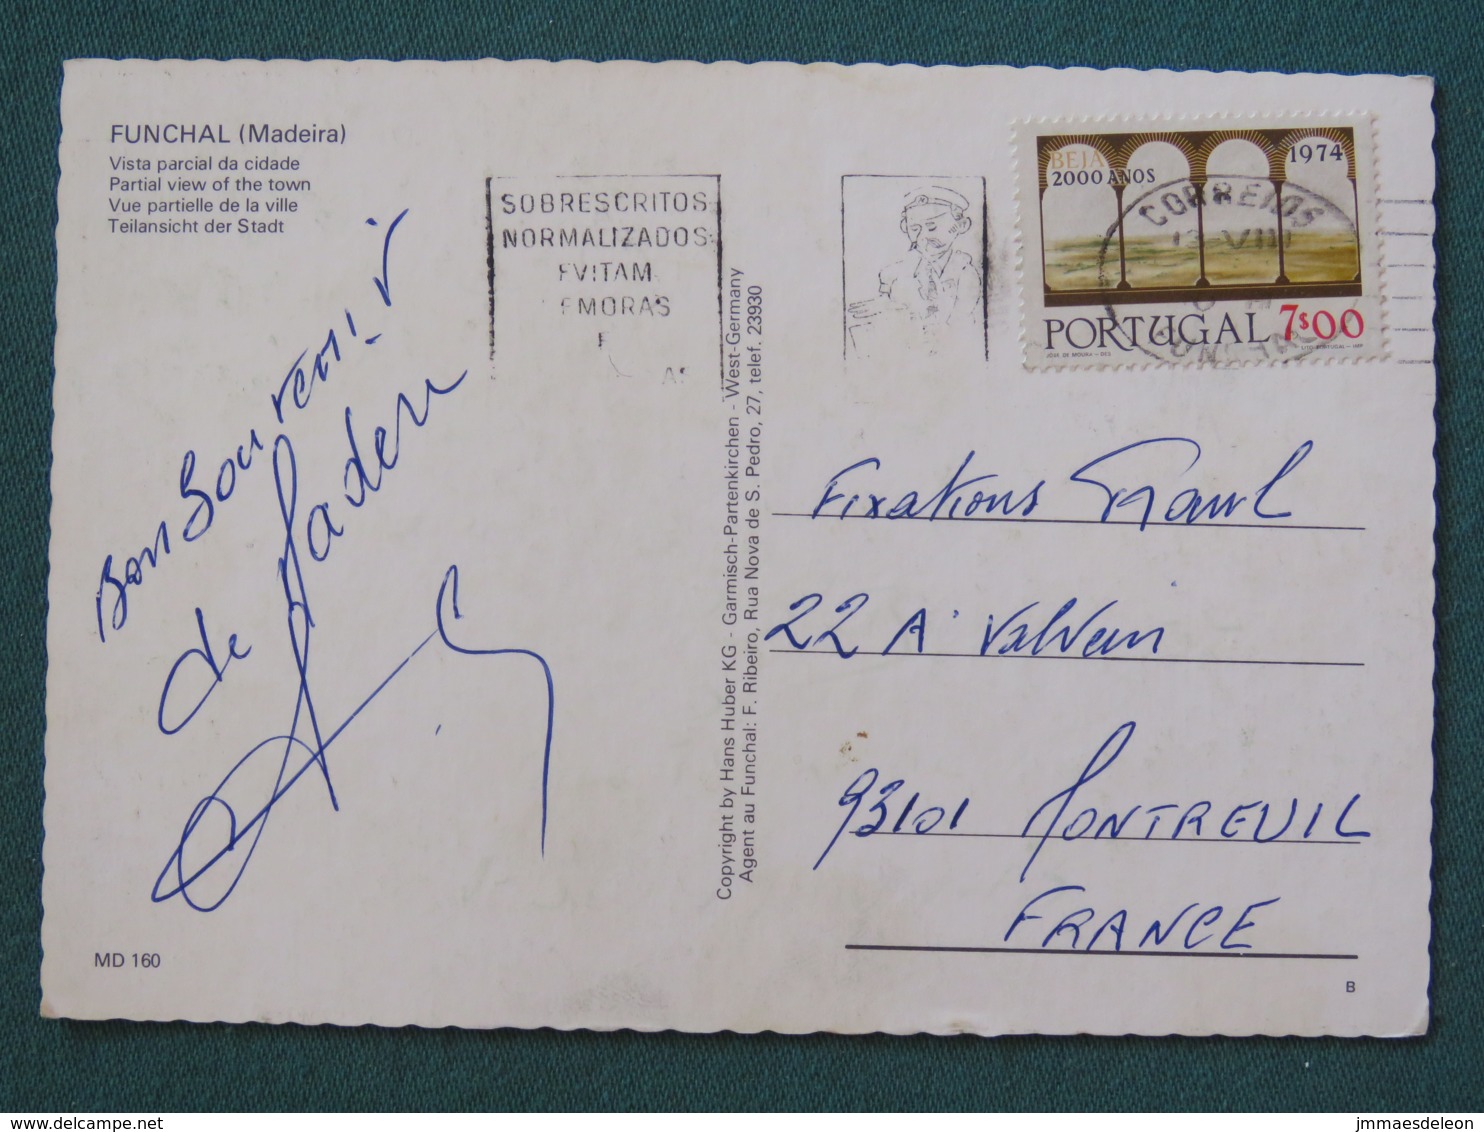 FUNCHAL (Madeira)
Vista parcial da cidade
Partial view of the town
Vue partielle de la ville
Teilansicht der Stadt
SOBRESCRITOS
NORMALIZADOS
EVITAM
EMORAS
BEJA
2000 ANOS
1974
CORREIOS
13 VIII
PORTUGAL 7$00
JOSÉ DE MOURA - DES
LITO PORTUGAL - IMP
Bon Souvenir
de Madera
Copyright by Hans Huber KG - Garmisch-Partenkirchen - West-Germany
Agent au Funchal: F. Ribeiro, Rua Nova de S. Pedro, 27, telef. 23930
Fixations
22 A
93101 MONTREUIL
FRANCE
MD 160
B
www.delcampe.net
jmmaesdeleon